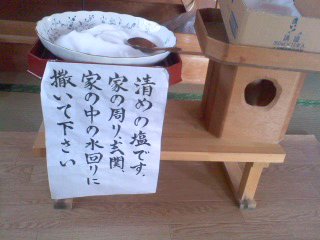 清めの塩です。
家の周り、玄関、
家の中の水回りに
撒いて下さい